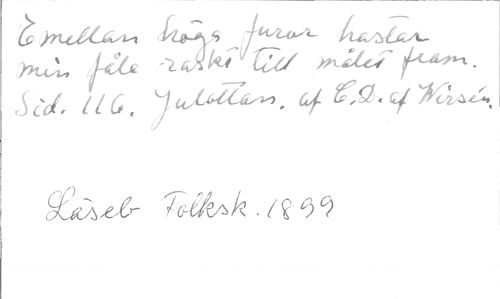 Emellan höga furor hastar
min fåle raskt till målet fram.
Sid. 116. Julottan. af C. D. af Wirsén.
Läseb Folksk. 1899